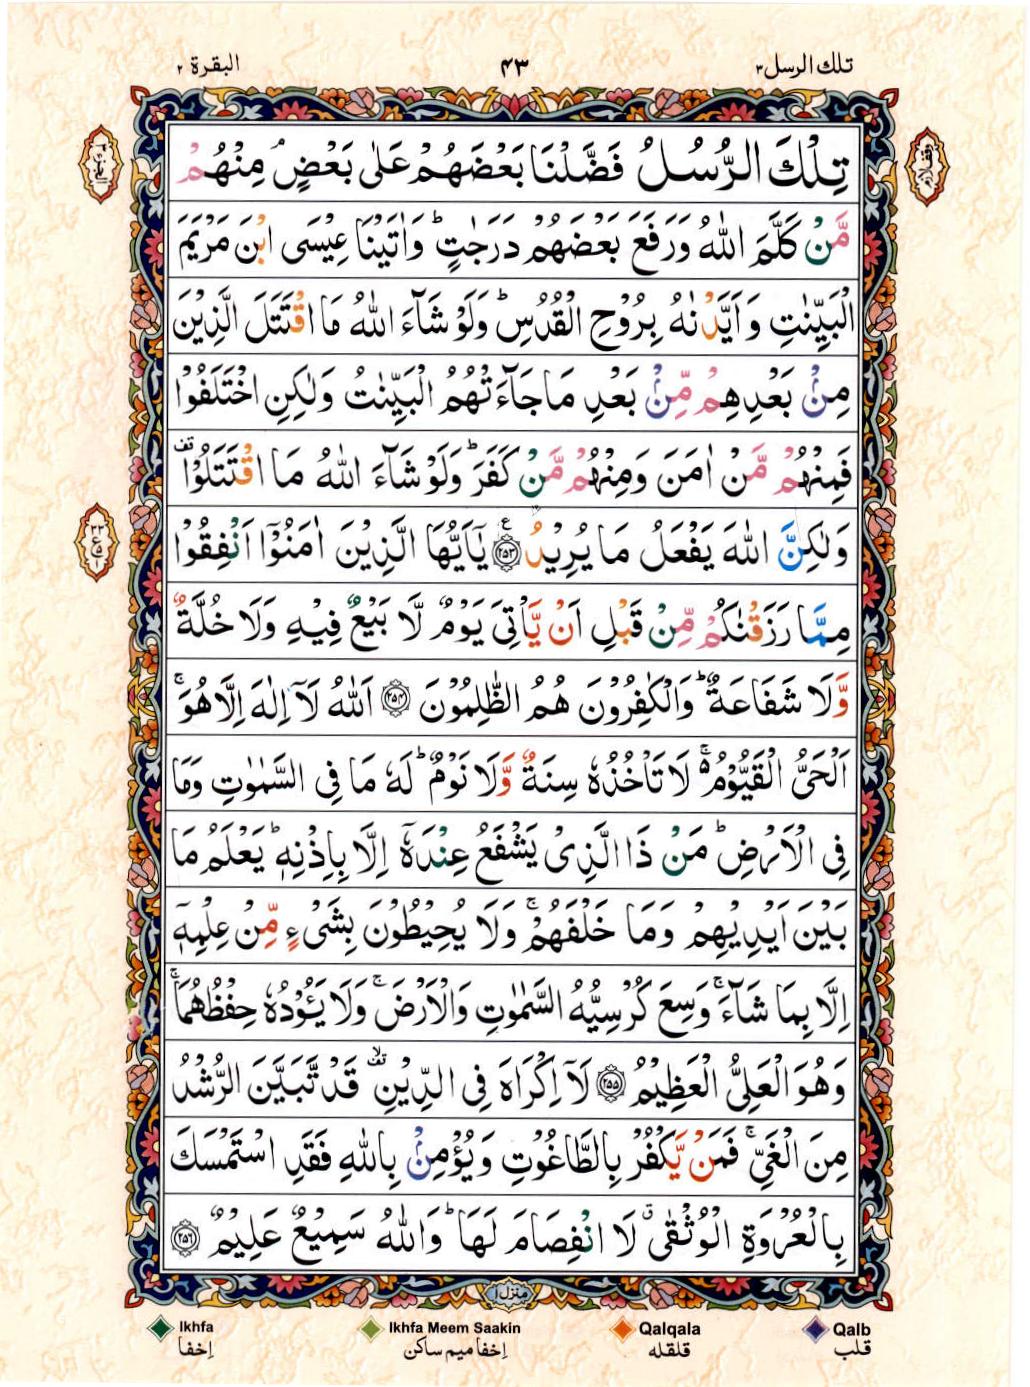 تلك الرسل ٣
٤٣
البقرة ٢
تِلْكَ الرُّسُلُ فَضَّلْنَا بَعْضَهُمْ عَلٰى بَعْضٍ ۘ مِنْهُمْ
مَّنْ كَلَّمَ اللّٰهُ وَرَفَعَ بَعْضَهُمْ دَرَجٰتٍ ؕ وَاٰتَيْنَا عِيْسَى ابْنَ مَرْيَمَ
الْبَيِّنٰتِ وَاَيَّدْنٰهُ بِرُوْحِ الْقُدُسِ ؕ وَلَوْ شَآءَ اللّٰهُ مَا اقْتَتَلَ الَّذِيْنَ
مِنْۢ بَعْدِهِمْ مِّنْۢ بَعْدِ مَا جَآءَتْهُمُ الْبَيِّنٰتُ وَلٰكِنِ اخْتَلَفُوْا
فَمِنْهُمْ مَّنْ اٰمَنَ وَمِنْهُمْ مَّنْ كَفَرَ ؕ وَلَوْ شَآءَ اللّٰهُ مَا اقْتَتَلُوْا قف
وَلٰكِنَّ اللّٰهَ يَفْعَلُ مَا يُرِيْدُ ﴿٢٥٣﴾ ع يٰۤاَيُّهَا الَّذِيْنَ اٰمَنُوْۤا اَنْفِقُوْا
مِمَّا رَزَقْنٰكُمْ مِّنْ قَبْلِ اَنْ يَّاْتِىَ يَوْمٌ لَّا بَيْعٌ فِيْهِ وَلَا خُلَّةٌ
وَّلَا شَفَاعَةٌ ؕ وَالْكٰفِرُوْنَ هُمُ الظّٰلِمُوْنَ ﴿٢٥٤﴾ اَللّٰهُ لَاۤ اِلٰهَ اِلَّا هُوَ ۚ
اَلْحَىُّ الْقَيُّوْمُ ۚ لَا تَاْخُذُهٗ سِنَةٌ وَّلَا نَوْمٌ ؕ لَهٗ مَا فِى السَّمٰوٰتِ وَمَا
فِى الْاَرْضِ ؕ مَنْ ذَا الَّذِىْ يَشْفَعُ عِنْدَهٗۤ اِلَّا بِاِذْنِهٖ ؕ يَعْلَمُ مَا
بَيْنَ اَيْدِيْهِمْ وَمَا خَلْفَهُمْ ۚ وَلَا يُحِيْطُوْنَ بِشَىْءٍ مِّنْ عِلْمِهٖۤ
اِلَّا بِمَا شَآءَ ۚ وَسِعَ كُرْسِيُّهُ السَّمٰوٰتِ وَالْاَرْضَ ۚ وَلَا يَـُٔوْدُهٗ حِفْظُهُمَا ۚ
وَهُوَ الْعَلِىُّ الْعَظِيْمُ ﴿٢٥٥﴾ لَاۤ اِكْرَاهَ فِى الدِّيْنِ ۙ قف قَدْ تَّبَيَّنَ الرُّشْدُ
مِنَ الْغَىِّ ۚ فَمَنْ يَّكْفُرْ بِالطَّاغُوْتِ وَيُؤْمِنْۢ بِاللّٰهِ فَقَدِ اسْتَمْسَكَ
بِالْعُرْوَةِ الْوُثْقٰى ۗ لَا انْفِصَامَ لَهَا ؕ وَاللّٰهُ سَمِيْعٌ عَلِيْمٌ ﴿٢٥٦﴾
الجزء ٣
وقف لازم
منزل ١
Ikhfa
اِخفا
Ikhfa Meem Saakin
اِخفا میم ساکن
Qalqala
قلقله
Qalb
قلب